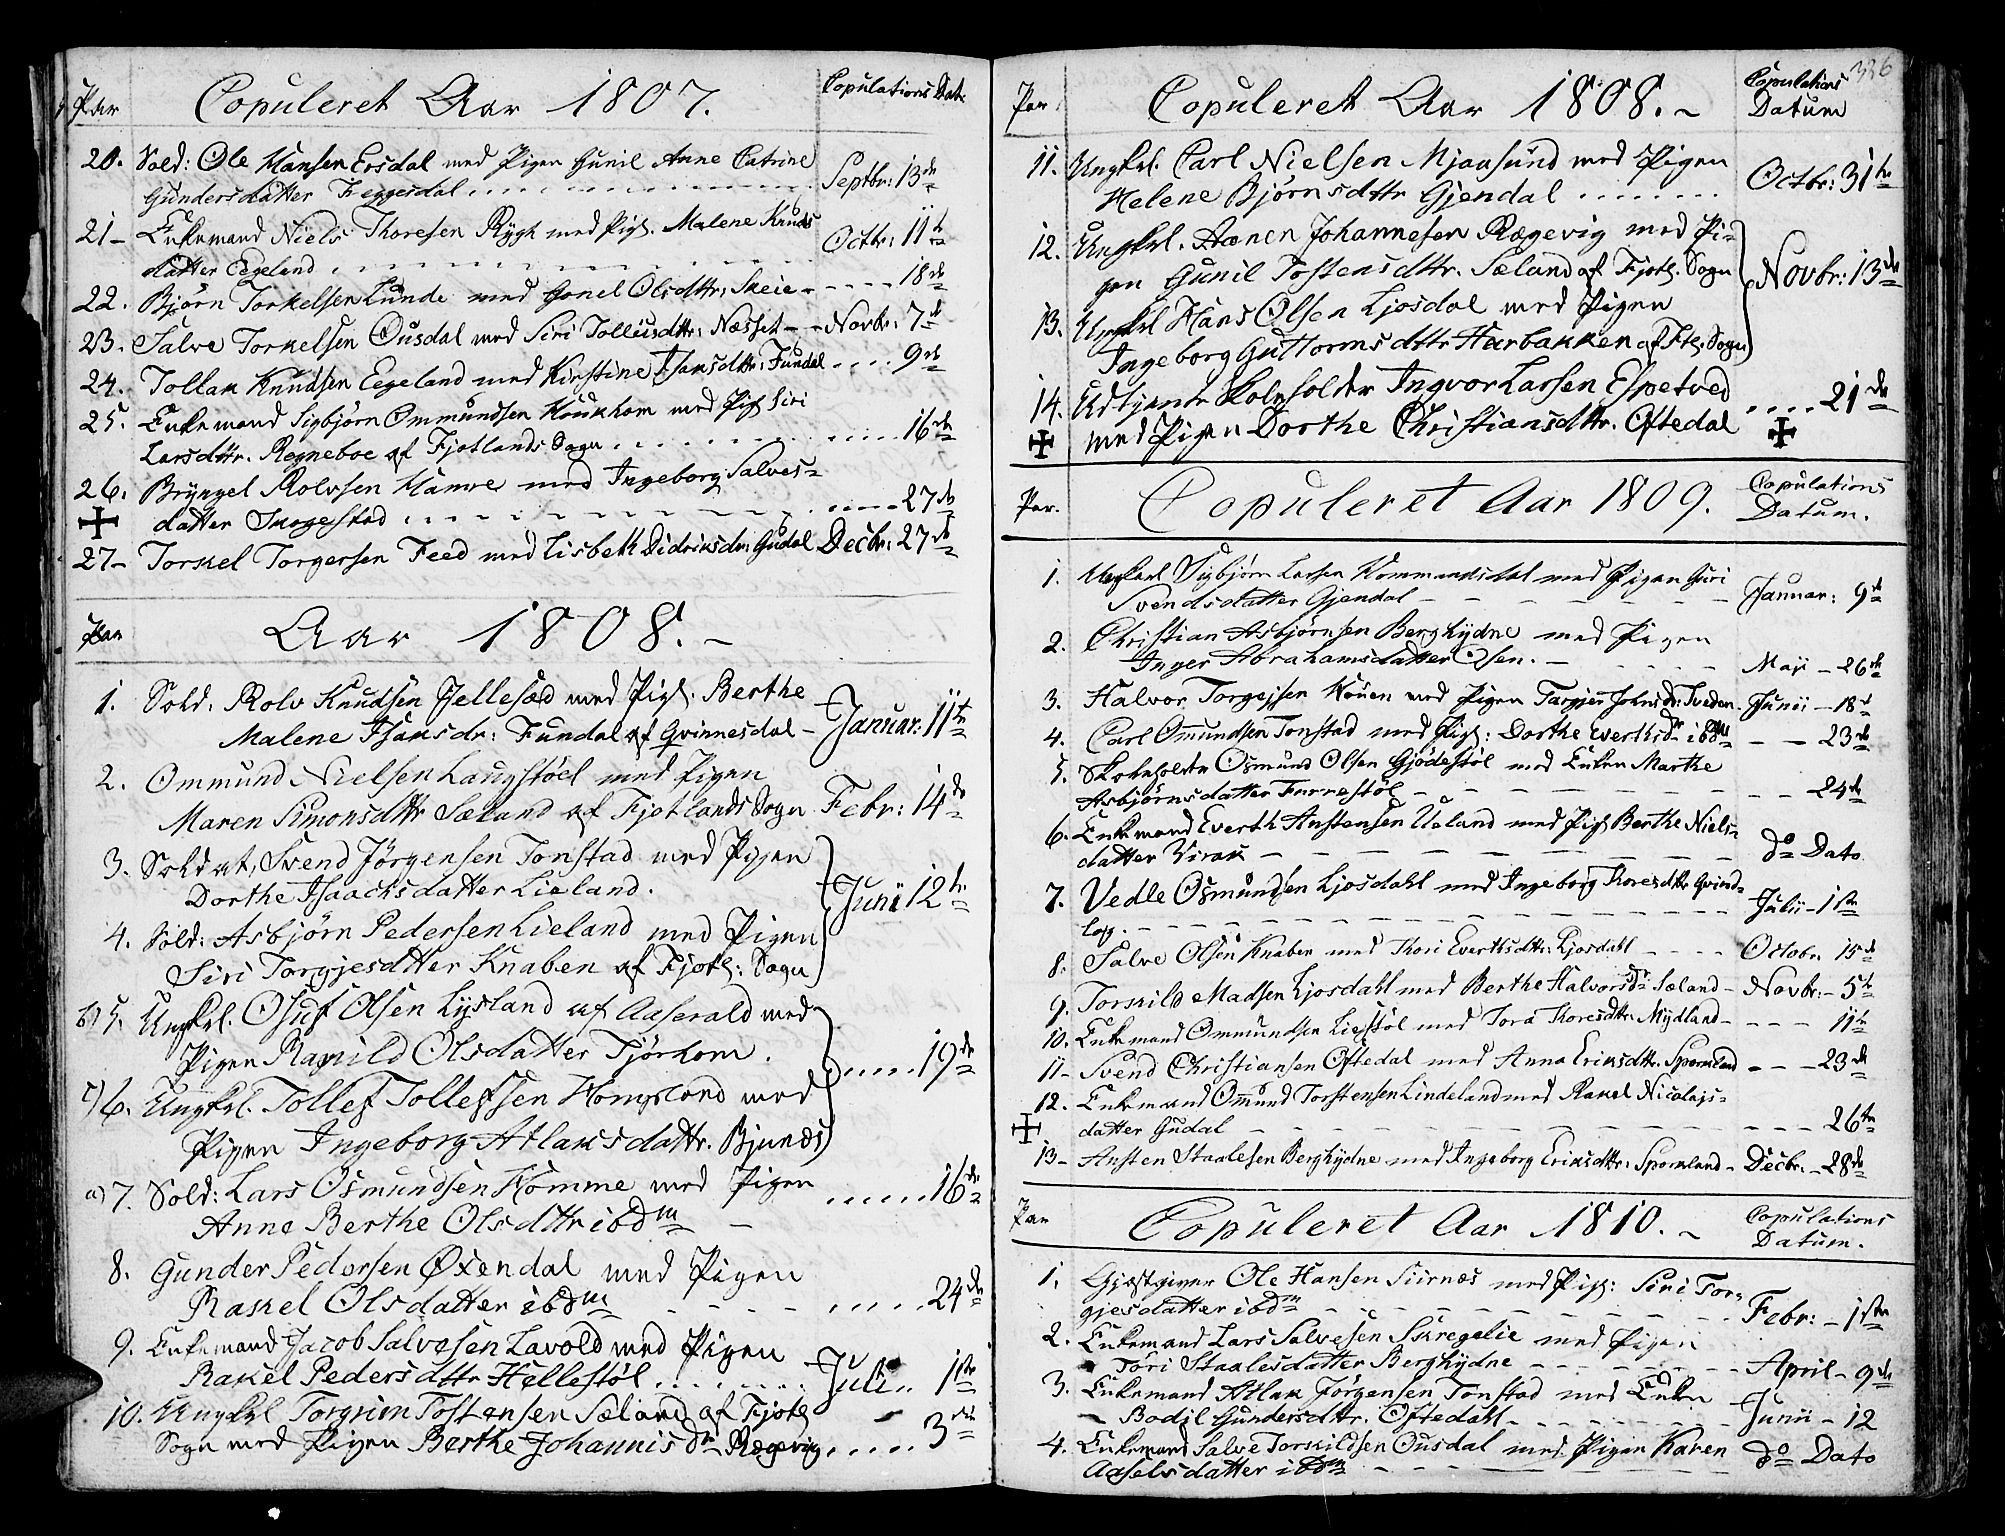 Par Copuleret Aar 1807. Copulations Dat.
20. Sold: Ole Hansen Ersdal med Pigen Gunil Anne Catrine
Gundersdatter Feggesdal Septbr: 13de
21- Enkemand Niels Thoresen Rygh med Pig. Malene Knuds
datter Eegeland Octbr: 11te
22. Bjørn Torkelsen Lunde med Gonel Olsdttr: Skeie - 18de
23. Salve Torkelsen Ousdal med Siri Tollüsdttr: Næsset - - Novbr: 7de
24. Tollak Knudsen Eegeland med Kirstine Isaksdttr: Fundal 9de
25. Enkemand Sigbjørn Ommundsen Kvukhom med Pig Siri
Larsdttr. Regneboe af Fjotlands Sogn 16de
26. Bryngel Rolvsen Hamre med Ingeborg Salves=
datter Skregestad 27de
27- Torkel Torgersen Feed med Lisbeth Didriksdr: Gudal Decbr: 27de
Par Aar 1808. -
1. Sold. Rolv Knudsen Jellesæd med Pig. Berthe
Malene Isaksdr: Fundal af Qvinnesdal - Januar: 11te
2. Ommund Nielsen Laugstöel med Pigen
Maren Simonsdttr Sæland af Fjotlands Sogn Febr: 14de
3. Soldat, Svend Jörgensen Tonstad med Pigen
Dorthe Isaachsdatter Lieland. Junii 12te
4. Sold: Asbjörn Pedersen Lieland med Pigen
Siri Torgjesdtter Knaben af Fjotl: Sogn
b) 5. Ungkrl. Osuf Olsen Lysland af Aaserald med
Pigen Ragnild Olsdatter Tjörhom. 19de
c) 6. Ungkrl. Tollef Tollefsen Homsland med
Pigen Ingeborg Atlaksdattr. Bjunes
a) 7. Sold: Lars Osmundsen Homme med Pigen 16de
Anne Berthe Olsdttr ibdm -
8. Gunder Pedersen Øxendal med Pigen
Rakel Olsdatter ibdm 24de
9. Enkemand Jacob Salvesen Lavold med Pigen
Rakel Pedersdttr Hellestöl Juli 1ste
10. Ungkrl Torgrim Tostensen Sæland af Fjotl
Sogn med Pigen Berthe Johannisdr Rægevig 3die
336
Par. Copuleret Aar 1808. - Copulations Datum
11. Ungkrl. Carl Nielsen Mjaasund med Pigen
Helene Björnsdttr Gjendal Octbr: 31te
12. Ungkrl. Aanen Johannesen Rægevig med Pi-
gen Gunil Tostensdttr. Sæland af Fjotl. Sogn Novbr: 13de
13. Ungkrl Hans Olsen Ljosdal med Pigen
Ingeborg Guttormsdttr Harbakken af Ftl. Sogn
14. Udtjente Skoleholder Ingvor Larsen Espetved
med Pigen Dorthe Christiansdttr. Oftedal 21de
Par. Copuleret Aar 1809. Copulations Datum.
1. Ungkarl Sigbjørn Larsen Kommandsdal med Pigen Guri
Svendsdatter Gjendal - Januar: 9de
2. Christian Asbjørnsen Berghydne med Pigen
Inger Abrahamsdatter Osen. - Maji - 26de
3. Halvor Torgejsen Houen med Pigen Targjer Johnsdr: Tveden - Junii - 18de
4. Carl Omundsen Tonstad med Pig: Dorthe Evertsdr ibdm - - 23de
5. Skoleholder Osmund Olsen Gjödestöl med Enken Marthe
Asbjörnsdatter Furrestöl - - 24de
6. Enkemand Everth Anstensen Ueland med Pig Berthe Niels=
datter Virak - do Dato
7. Vedle Osmundsen Ljosdahl med Ingeborg Thoresdttr Qvind-
log. - Julii - 1ste
8. Salve Olsen Knaben med Thori Evertsdttr: Ljosdahl - Octobr 15de
9. Torkild Madsen Ljosdahl med Berthe Halvorsdr: Sæland - Novbr: - 5te
10. Enkemand Ommundsen Liestöl med Tora Thoresdttr: Mydland - - - 11te
11- Svend Christiansen Oftedal med Anna Eriksdttr. Spormland - - - 23de
12. Enkemand Omund Torstensen Lindeland med Rakel Nicolajs=
datter Gudal - - 26de
13- Ansten Staalesen Berghydne med Ingeborg Eriksdttr: Spormland - Decbr: - 28de
Par Copuleret Aar 1810. - Copulations Datum.
1. Gjæstgiver Ole Hansen Siirnæs med Pig: Siri Tor=
gjesdatter ibdm - Febr: - 1ste
2. Enkemand Lars Salvesen Skregelie med Pigen
Tori Staalesdatter Berghydne - April - 9de
3. Enkemand Atlak Jörgensen Tonstad med Enken
Bodil Gundersdttr. Oftedahl - Junii - 12
4. Enkemand Salve Torkildsen Ousdal med Pigen Karen
Aaselsdatter ibdm - do Dato